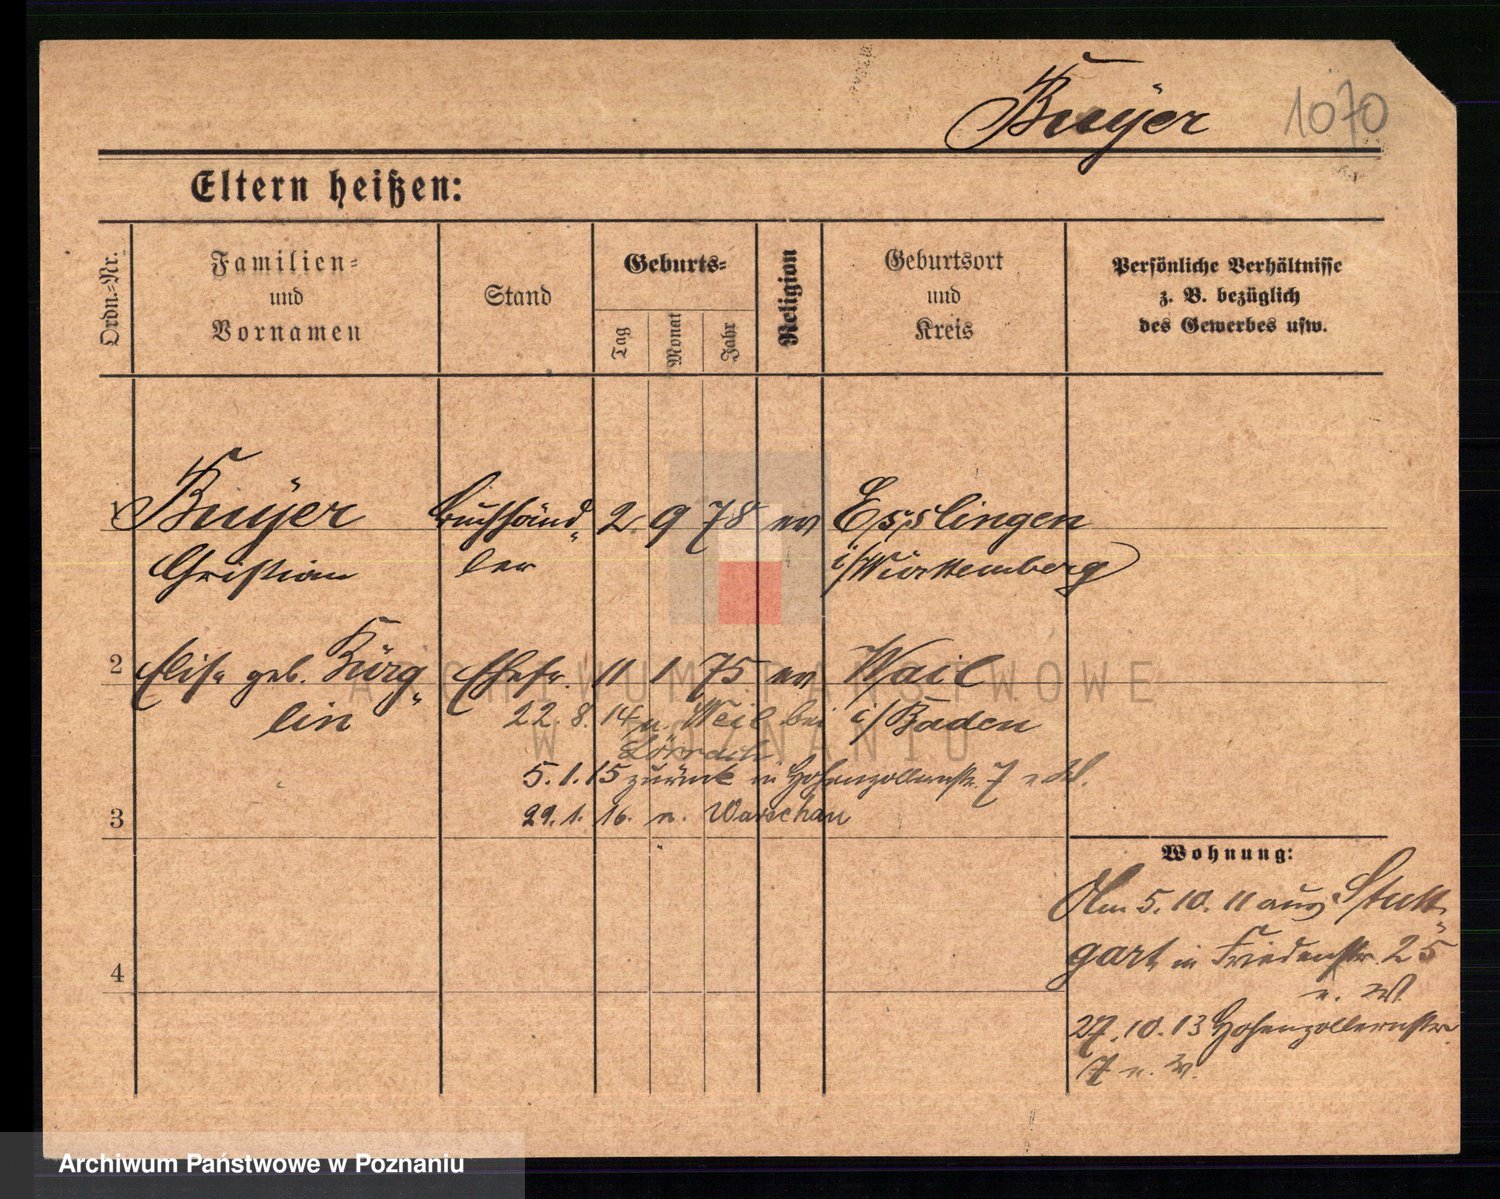 Buÿer 1070
Eltern heißen:
Ordn.-Nr.
Familien-
und
Vornamen
Stand
Geburts-
Tag
Monat
Jahr
Religion
Geburtsort
und
Kreis
Persönliche Verhältnisse
z. B. bezüglich
des Gewerbes usw.
1 Buÿer Buchhänd- 2. 9 78 ev Esslingen
Christian ler i/Württemberg
2 Elise geb. Kürg- Ehefr. 11 1 75 ev Wail
lin i/Baden
22. 8. 14 n. Weil bei
Lörrach
5. 1. 15 zurück in Hohenzollernstr. 7 e. W.
29. 1. 16. n. Warschau
3
Wohnung:
Am 5. 10. 11 aus Stutt-
gart in Friedenstr. 25
e. W.
27. 10. 13 Hohenzollernstr.
7 e. W.
4
ARCHIWUM PAŃSTWOWE
W POZNANIU
Archiwum Państwowe w Poznaniu